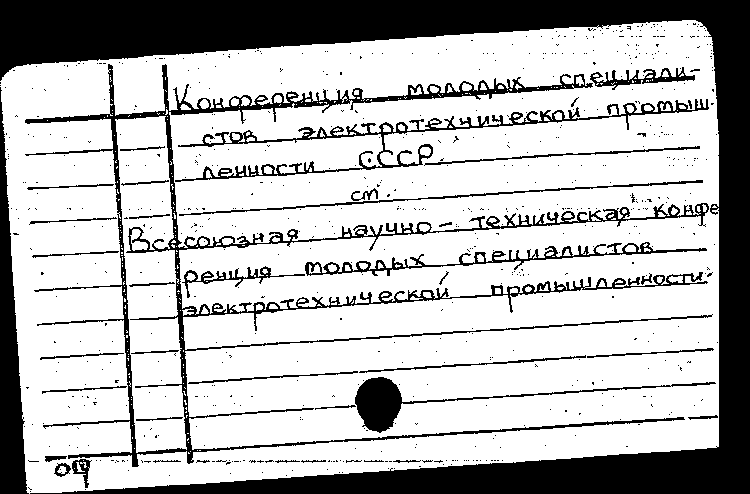 Конференция молодых специали-
стов электротехнической промыш-
ленности СССР.
см.
Всесоюзная научно-техническая конфе
ренция молодых специалистов
электротехнической промышленности.